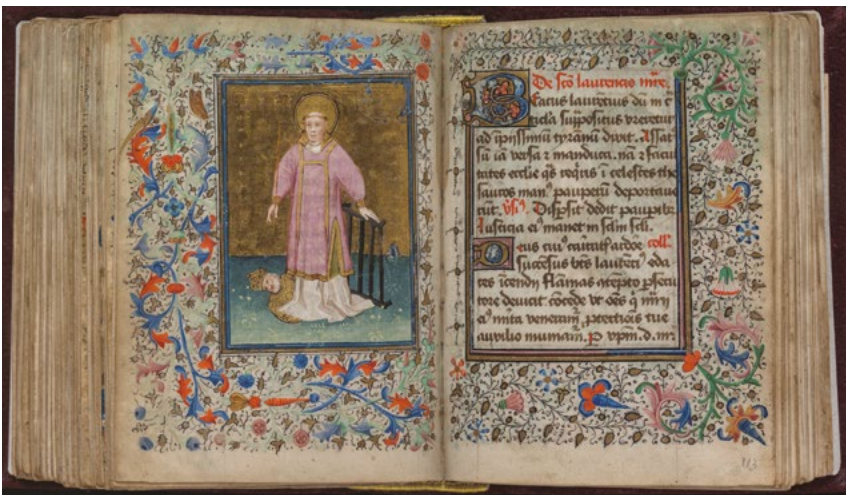 De sc̄o laurencio mr̄e.
Beatus laurētius dū ī c̄
ticla suppositus vreretur
ad īpiissimū tyrānū dixit. Assat
sū iā versa ⁊ manduca. nā ⁊ facul
tates ecclīe qs̄ reqris ī celestes the
sauros man⁹ pauperū deportaue
rūt. Vsꝰ. Dispsit dedit paupibꝰ
Iusticia ei⁹ manet in sclm̄ scli.
Deus cui⁹ caritatꝭ ardore coll̄.
succēsus bt̄s laurēti⁹ eda
ces īcendij flāmas ꝯtēpto ꝑsecu
tore deuicit cōcede vt oēs q̄
ei⁹ mīta venerām̄, ꝓtectiōis tue
auxilio muniam̄. P
113